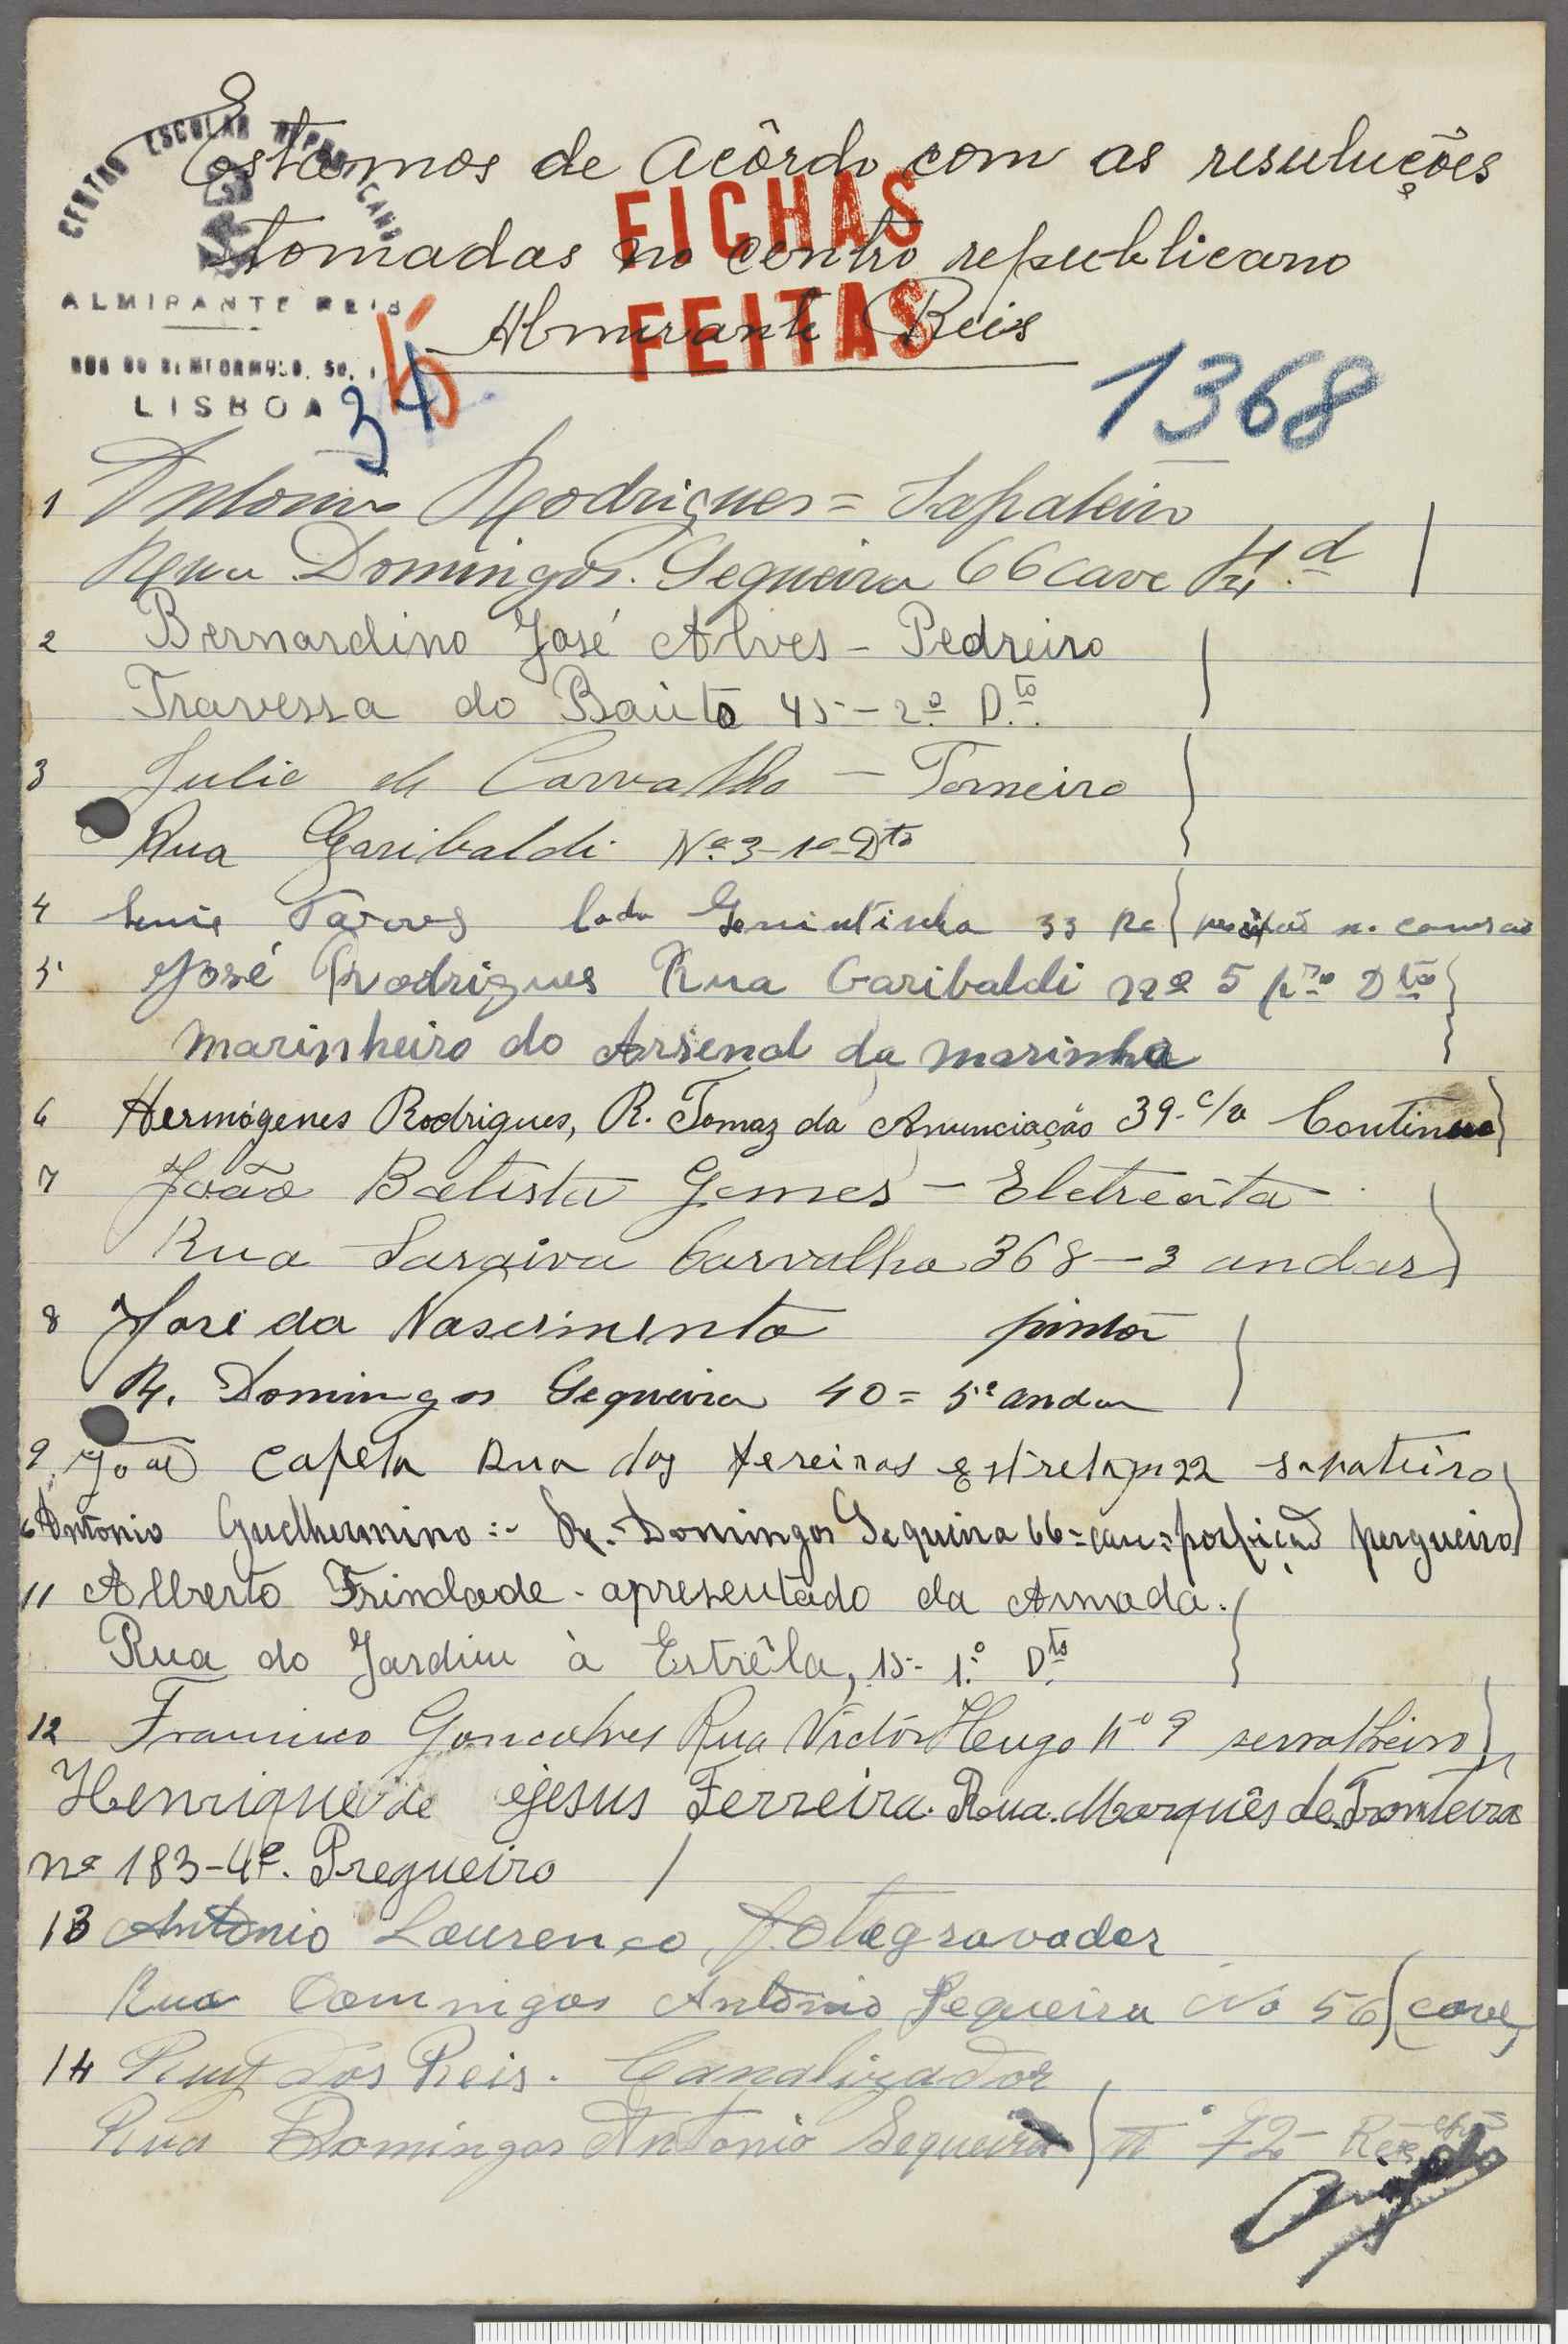 CENTRO ESCOLAR REPUBLICANO
ALMIRANTE REIS
LISBOA
Estamos de Acôrdo com as resuluções
tomadas no centro republicano
Almirante Reis
FICHAS
FEITAS
34
1368
1 Antonio Rodrigues = Sapateiro
Rua Domingos Sequeira 66 cave
2 Bernardino José Alves - Pedreiro
Travessa do Bauto 45 - 2º D.to
3 Julio de Carvalho - Torneiro
Rua Garibaldi Nº 3 - 1º Dto
4 Tavares 33
5 José Rodrigues Rua Garibaldi nº 5 Dto
marinheiro do Arsenal da marinha
6 Hermógenes Rodrigues, R. Tomaz da Anunciação 39 - c/v Continuo
7 João Batista Gomes -
Rua Saraiva Carvalho 368 - 3 andar
8 José da Nascimento pintor
R. Domingos Sequeira 40 = 5º andar
9 João Capela Rua dos ferreiros estrela 22 sapateiro
Antonio Guelhermino :- R. Domingos Sequeira 66 =
11 Alberto Trindade - apresentado da Armada.
Rua do Jardim à Estrêla, 15 - 1º Dto
12 Francisco Goncalves Rua Victor Hugo nº 9 serralheiro
Henrique de Jesus Ferreira. Rua. Marquês de Fronteira
nº 183-4º. Pregueiro
13 Antonio Lourenço fotogravador
Rua Domingos António Sequeira No 56 (cave)
14 Ruy dos Reis. Canalizador
Rua Domingos Antonio Sequeira nº 72